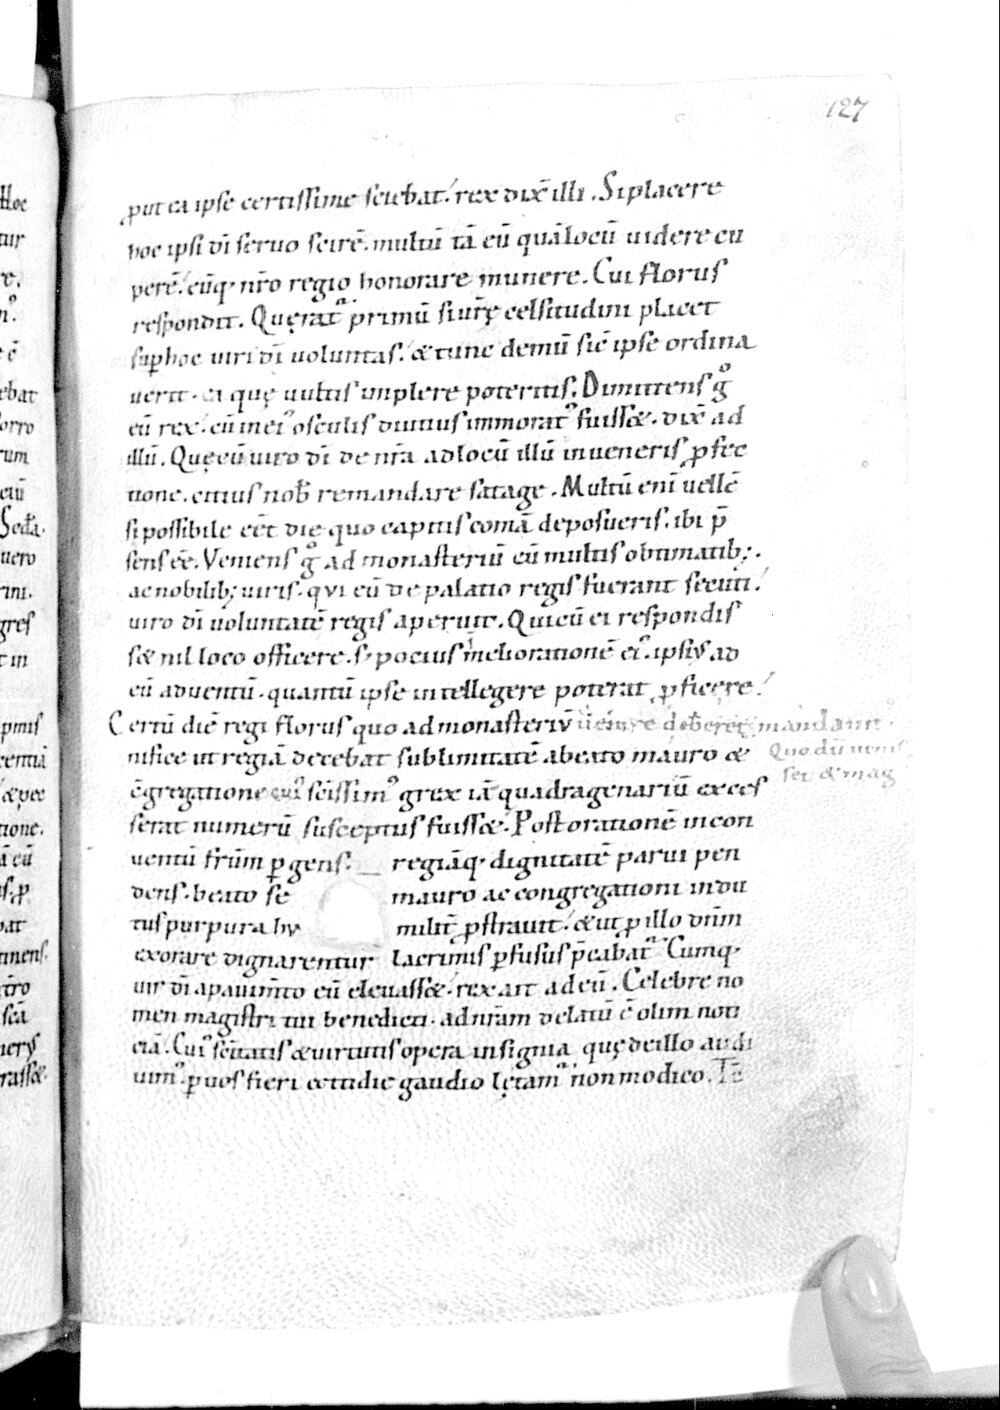 127
ꝓut ea ipse certissime sciebat. rex dix̄ illi. Si placere
hoc ipsi dī seruo scirē. multū tā eū quā locū uidere cu
perē. eūq; nr̄o regio honorare munere. Cui florus
respondit. Quęrat᷑ primū si ur̄ę celsitudini placet
suꝑ hoc uiri dī uoluntas. & tunc demū sic̄ ipse ordina
uerit. ei quę uultis implere poteritis. Dimittens gͦ
eū rex. cū in ei᷒ osculis diutius immorat᷒ fuiss&. dix̄ ad
illū. Quę cū uiro dī de nr̄a ad locū illū inueneris ꝓfec
tione. citius nob̄ remandare satage. Multū eni uellē
si possibile eēt die quo capitis comā deposueris. ibi p̄
sens eē. Veniens gͦ ad monasteriū cū multis obtimatib;.
ac nobilib; uiris. qui eū de palatio regis fuerant secuti.
uiro dī uoluntatē regis aperuit. Qui cū ei respondis
s& nil loco officere. s; pocius meliorationē ei᷒. ipsius ad
eū aduentū. quantū ipse intellegere poterat ꝓficere.
Certū diē regi florus quo ad monasteriū uenire deberet mandauit.
Quo dū uenis
set & mag
nifice ut regiā decebat sublimitatē a beato mauro &
c̄gregatione cui᷒ sc̄issim᷒ grex iā quadragenariū exces
serat numerū susceptus fuiss&. Post orationē in con
uentū fr̄um ꝑgens. regiāq; dignitatē parui pen
dens. beato se mauro ac congregationi indu
tus purpura hu milit̄ ꝓstrauit. & ut ꝓ illo dn̄m
exorare dignarentur lacrimis ꝑfusus p̄cabat᷑. Cumq;
uir dī a pauim̄to eū eleuass&. rex ait ad eū. Celebre no
men magistri tui benedicti. ad nr̄am delatū ē olim noti
ciā. Cui᷒ sc̄itatis & uirtutis opera insignia quę de illo audi
uim᷒. ꝑ uos fieri cottidie gaudio lętam᷑ non modico.